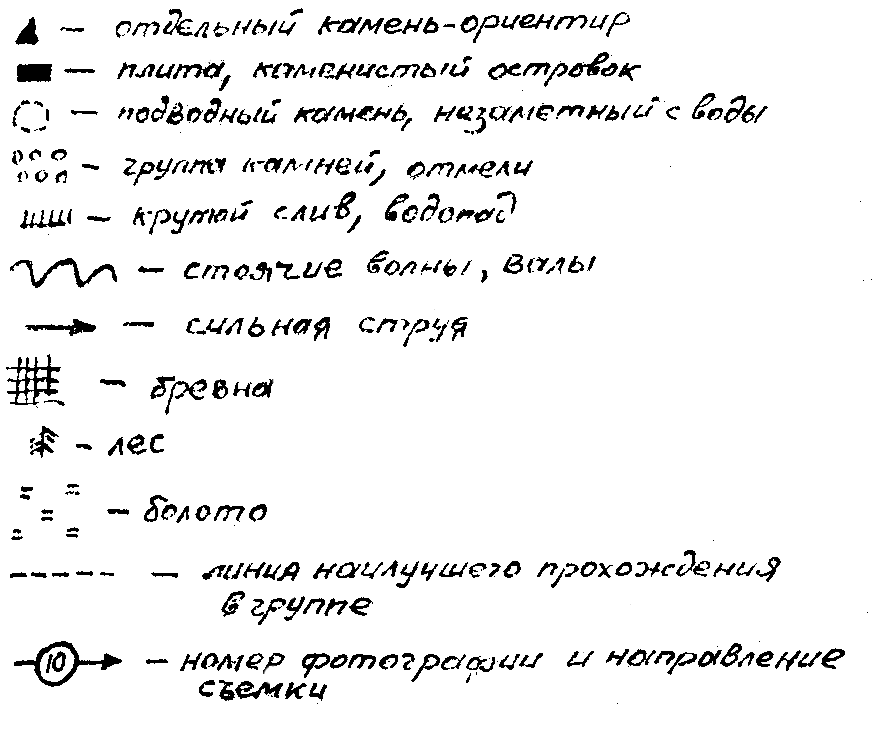 – отдельный камень-ориентир
– плита, каменистый островок
– подводный камень, незаметный с воды
– группа камней, отмели
– крутой слив, водопад
– стоячие волны, валы
– сильная струя
– бревна
– лес
– болото
– линия наилучшего прохождения
в группе
10 – номер фотографии и направление
съемки